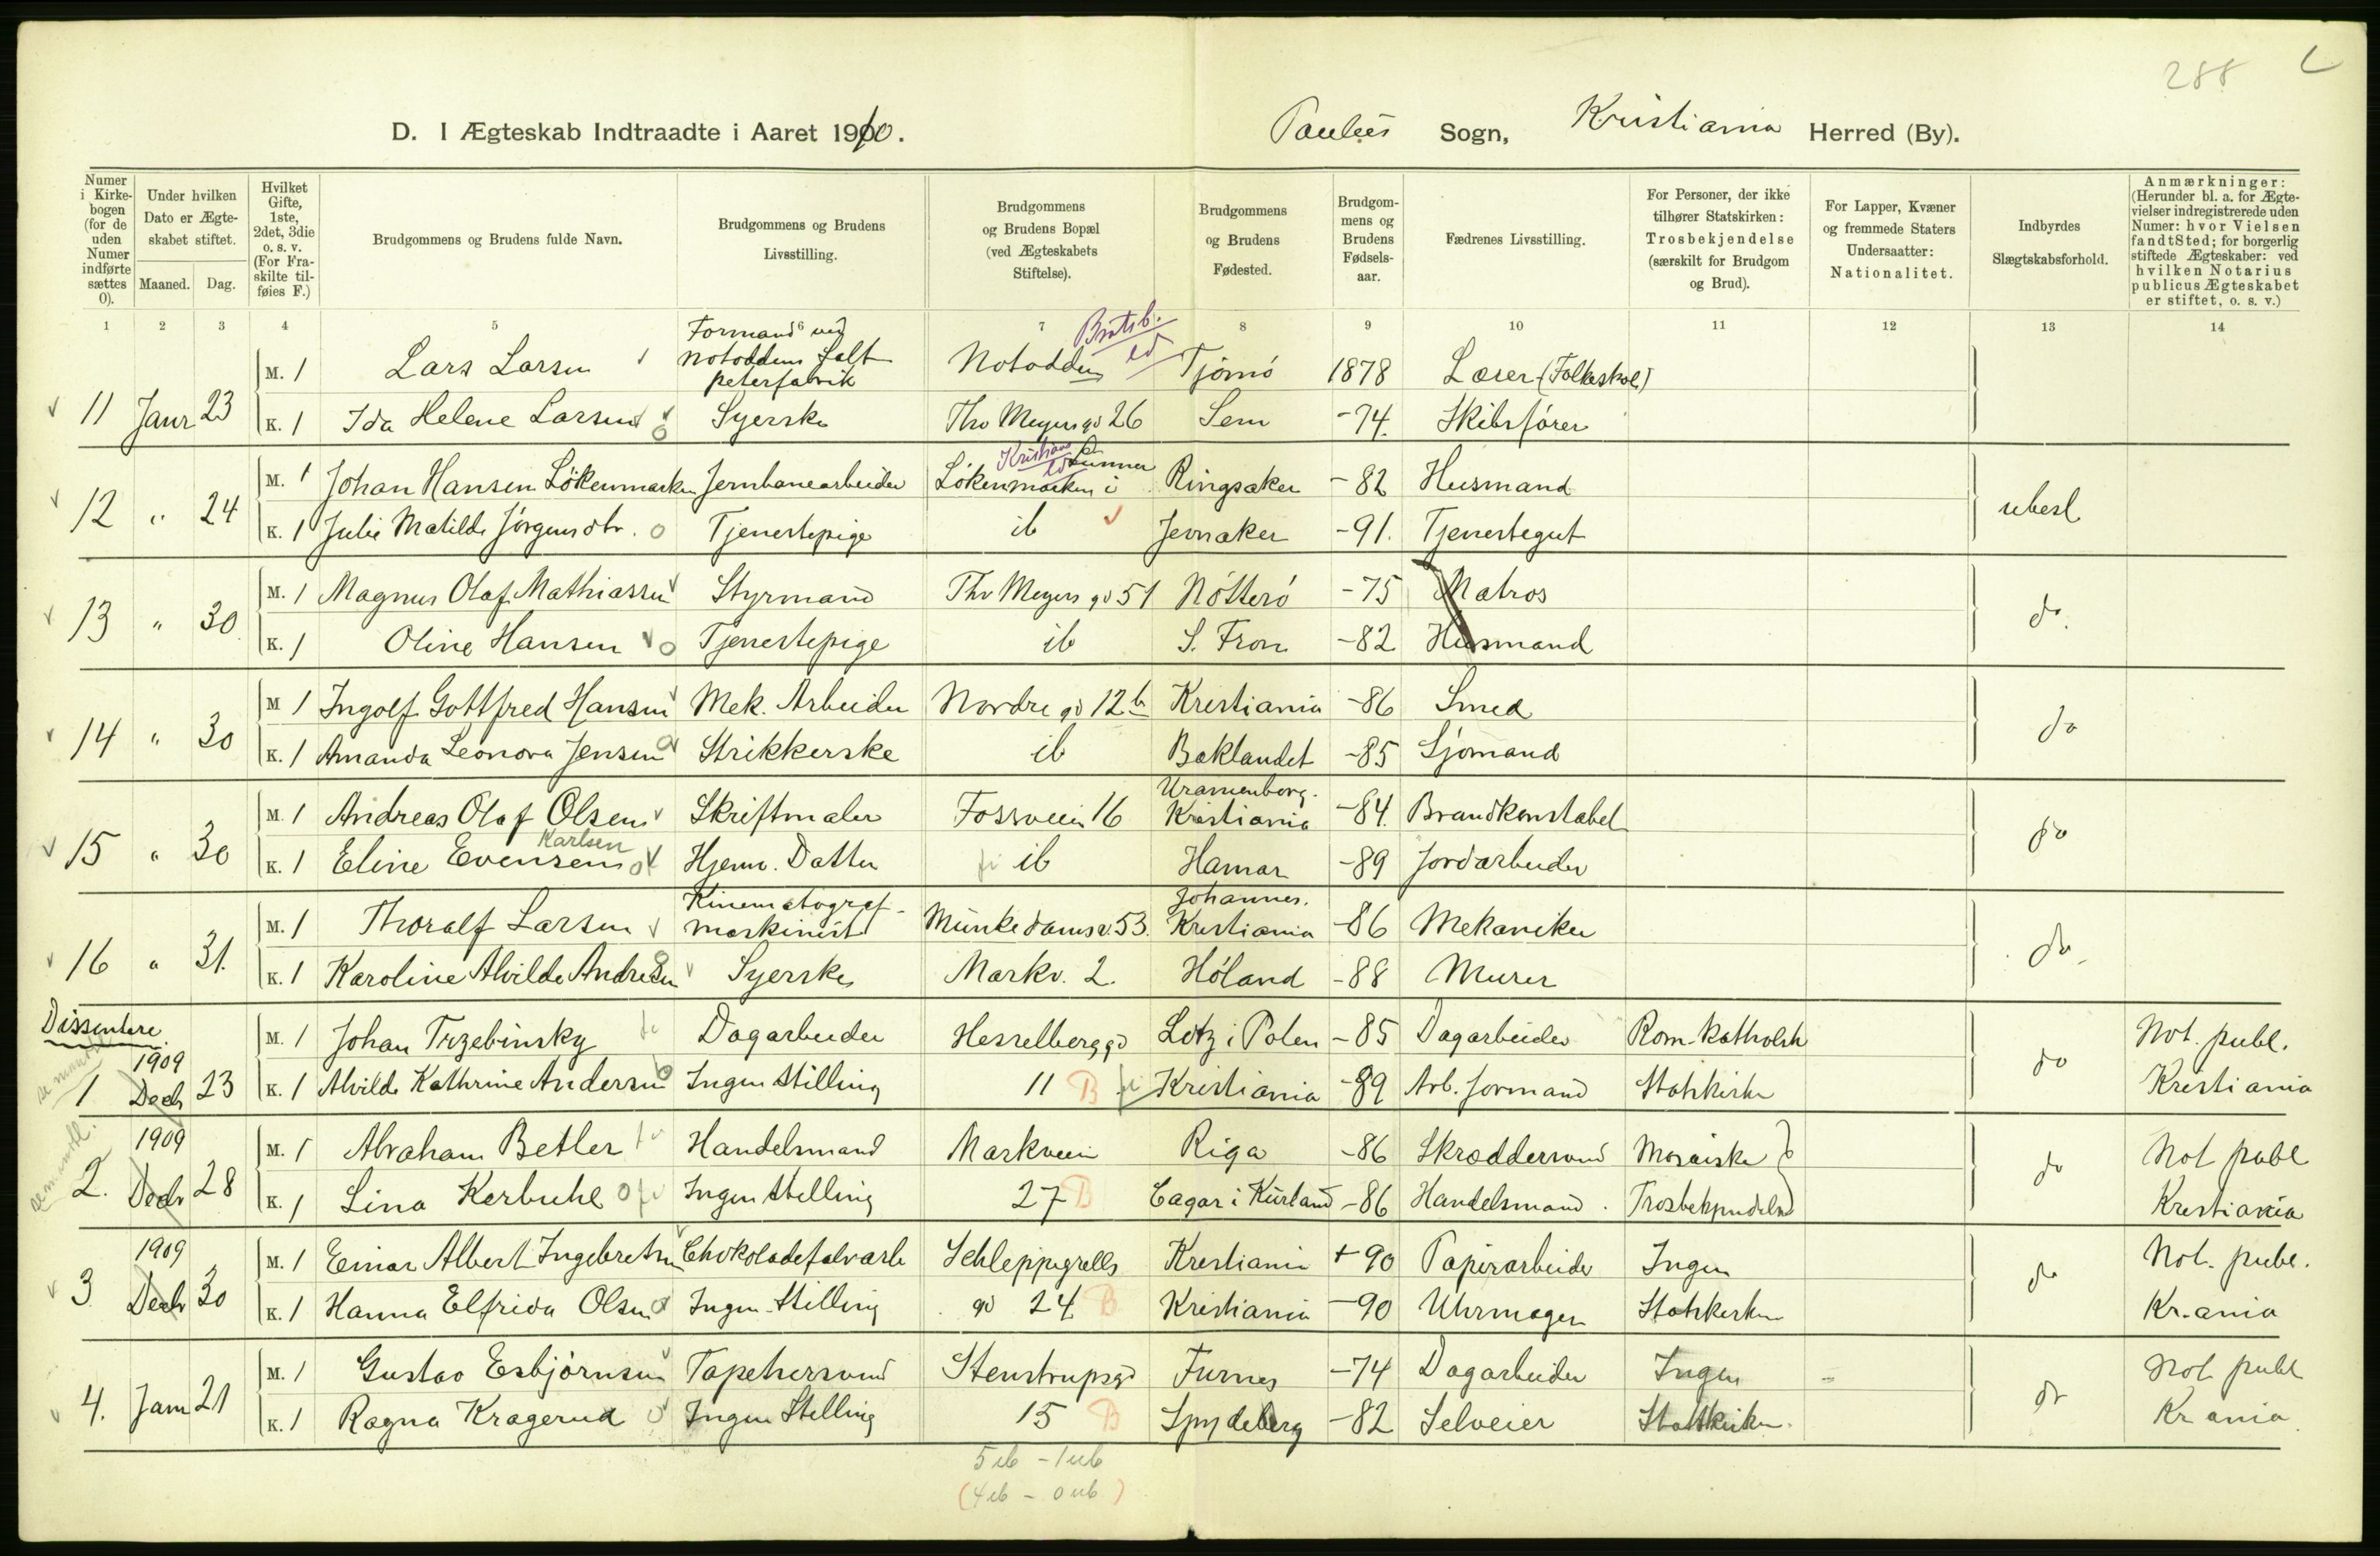 288
D. I Ægteskab Indtraadte i Aaret 1910. Paulus Sogn, Kristiania Herred (By).
Numer i Kirkebogen (for de uden Numer indførte sættes 0).
Under hvilken Dato er Ægteskabet stiftet.
Maaned. Dag.
Hvilket Gifte, 1ste, 2det, 3die o. s. v. (For Fraskilte tilføies F.)
Brudgommens og Brudens fulde Navn.
Brudgommens og Brudens Livsstilling.
Brudgommens og Brudens Bopæl (ved Ægteskabets Stiftelse).
Brudgommens og Brudens Fødested.
Brudgommens og Brudens Fødselsaar.
Fædrenes Livsstilling.
For Personer, der ikke tilhører Statskirken: Trosbekjendelse (særskilt for Brudgom og Brud).
For Lapper, Kvæner og fremmede Staters Undersaatter: Nationalitet.
Indbyrdes Slægtskabsforhold.
Anmærkninger: (Herunder bl. a. for Ægtevielser indregistrerede uden Numer: hvor Vielsen fandt Sted; for borgerlig stiftede Ægteskaber: ved hvilken Notarius publicus Ægteskabet er stiftet, o. s. v.)
1 2 3 4 5 6 7 8 9 10 11 12 13 14
11 Janr 23
M. 1 Lars Larsen Formand ved Notoddens Saltpeterfabrik Notodden Bratsb. Tjømø 1878 Lærer (Folkeskol)
K. 1 Ida Helene Larsen Syerske Thv Meyers gd 26 Sem -74. Skibsfører
12 " 24 ubesl
M. 1 Johan Hansen Løkenmarken Jernbanearbeider Løkenmarken i Lunner Kristians Ringsaker -82 Husmand
K. 1 Julie Matilde Jørgensdtr. Tjenestepige ib Jevnaker -91. Tjenestegut
13 " 30 do.
M. 1 Magnus Olaf Mathiassen Styrmand Thv Meyers gd 51 Nøtterø -75 Matros
K. 1 Oline Hansen Tjenestepige ib S. Fron -82 Husmand
14 " 30 do
M 1 Ingolf Gottfred Hansen Mek. Arbeider Nordre gd 12b Kristiania -86 Smed
K. 1 Amanda Leonora Jensen Strikkerske ib Baklandet -85 Sjømand
15 " 30 do
M. 1 Andreas Olaf Olsen Skriftmaler Fossveien 16 Uranienborg. Kristiania -84. Brandkonstabel
K. 1 Eline Evensen Karlsen Hjemv. Datter ib Hamar -89 Jordarbeider
16 " 31. do
M. 1 Thoralf Larsen Kinematografmaskinist Munkedamsv. 53. Johannes. Kristiania -86 Mekaniker
K. 1 Karoline Alvilde Andresen Syerske Markv. 2. Høland -88 Murer
Dissentere
1 1909 Decbr 23 do Not. publ. Kristiania
M. 1 Johan Trzebinsky Dagarbeider Hesselberg gd Lotz i Polen -85 Dagarbeider Rom-Katholsk
K. 1 Alvilde Kathrine Andersen Ingen Stilling 11 B Kristiania -89 Arb. formand Statskirke
2. 1909 Decbr 28 do Not publ Kristiania
M. 1 Abraham Betler Handelsmand Markveien Riga -86 Skræddersvend Mosaiske
K. 1 Lina Kerbuhl Ingen Stilling 27 B Cagar i Kurland -86 Handelsmand Trosbekjendelse
3 1909 Decbr 30 do Not. publ. Kr.ania
M. 1 Einar Albert Ingebretsen Chokoladefabvarb Schleppegrells Kristiania -90 Papirarbeider Ingen
K. 1 Hanna Elfrida Olsen Ingen Stilling gd 24 B Kristiania -90 Uhrmager Statskirken
4. Janr 21 do Not publ Kr ania
M. 1 Gustav Esbjørnsen Tapetsersvend Stenstrupsgd Furnes -74 Dagarbeider Ingen
K. 1 Ragna Kragerud Ingen Stilling 15 B Spydeberg -82 Selveier Statskirken.
5 ib - 1 ub
(4 ib - 0 ub)